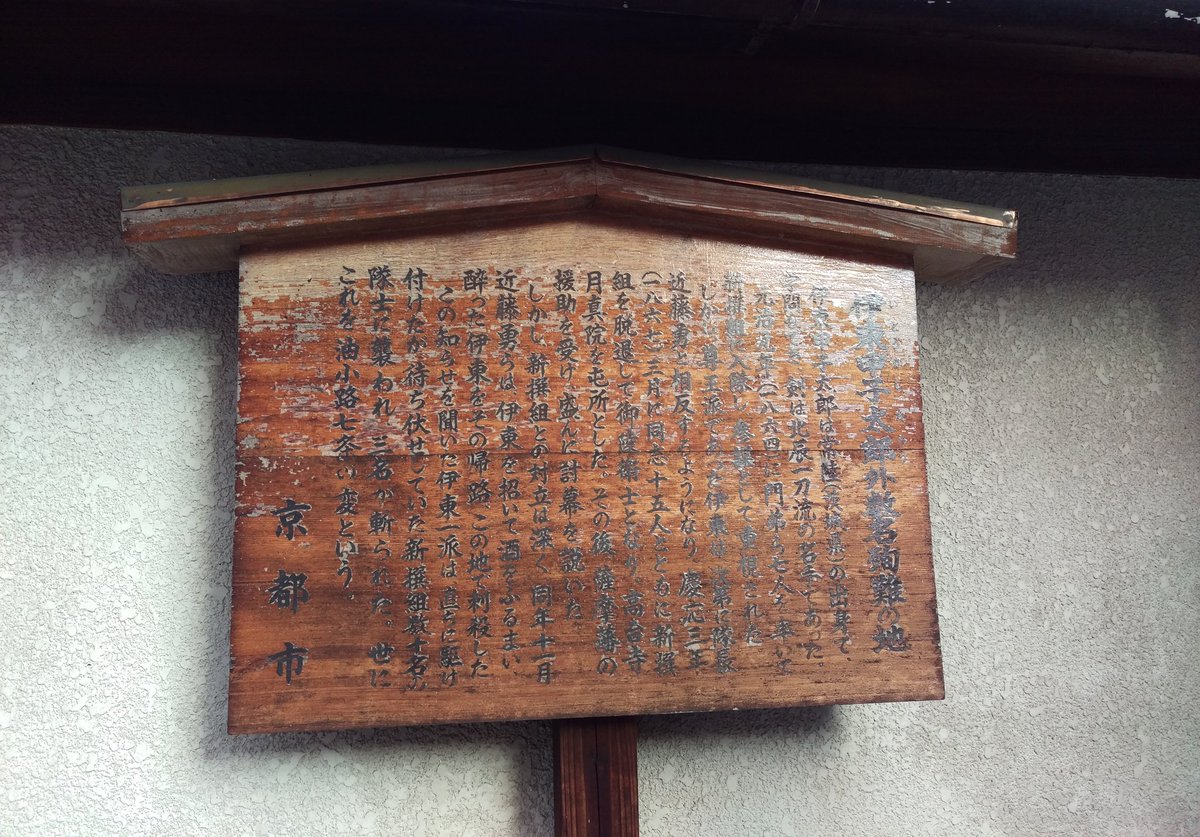 伊東甲子太郎外数名殉難の地
伊東甲子太郎は常陸(茨城県)の出身で、
学問もよく、剣は北辰一刀流の名手であった。
元治元年(一八六四)に門弟ら七人を率いて
新撰組に入隊し、参謀として重視された。
しかし、尊王派であった伊東は、次第に隊長
近藤勇と相反するようになり、慶応三年
(一八六七)三月に同志十五人とともに新撰
組を脱退して御陵衛士となり、高台寺
月真院を屯所とした。その後、薩摩藩の
援助を受け、盛んに討幕を説いた。
しかし、新撰組との対立は深く、同年十一月
近藤勇らは伊東を招いて酒をふるまい、
酔った伊東をその帰路、この地で刺殺した。
この知らせを聞いた伊東一派は直ちに駆け
付けたが待ち伏せしていた新撰組数十名の
隊士に襲われ、三名が斬られた。世に
これを油小路七条の変という。
京都市